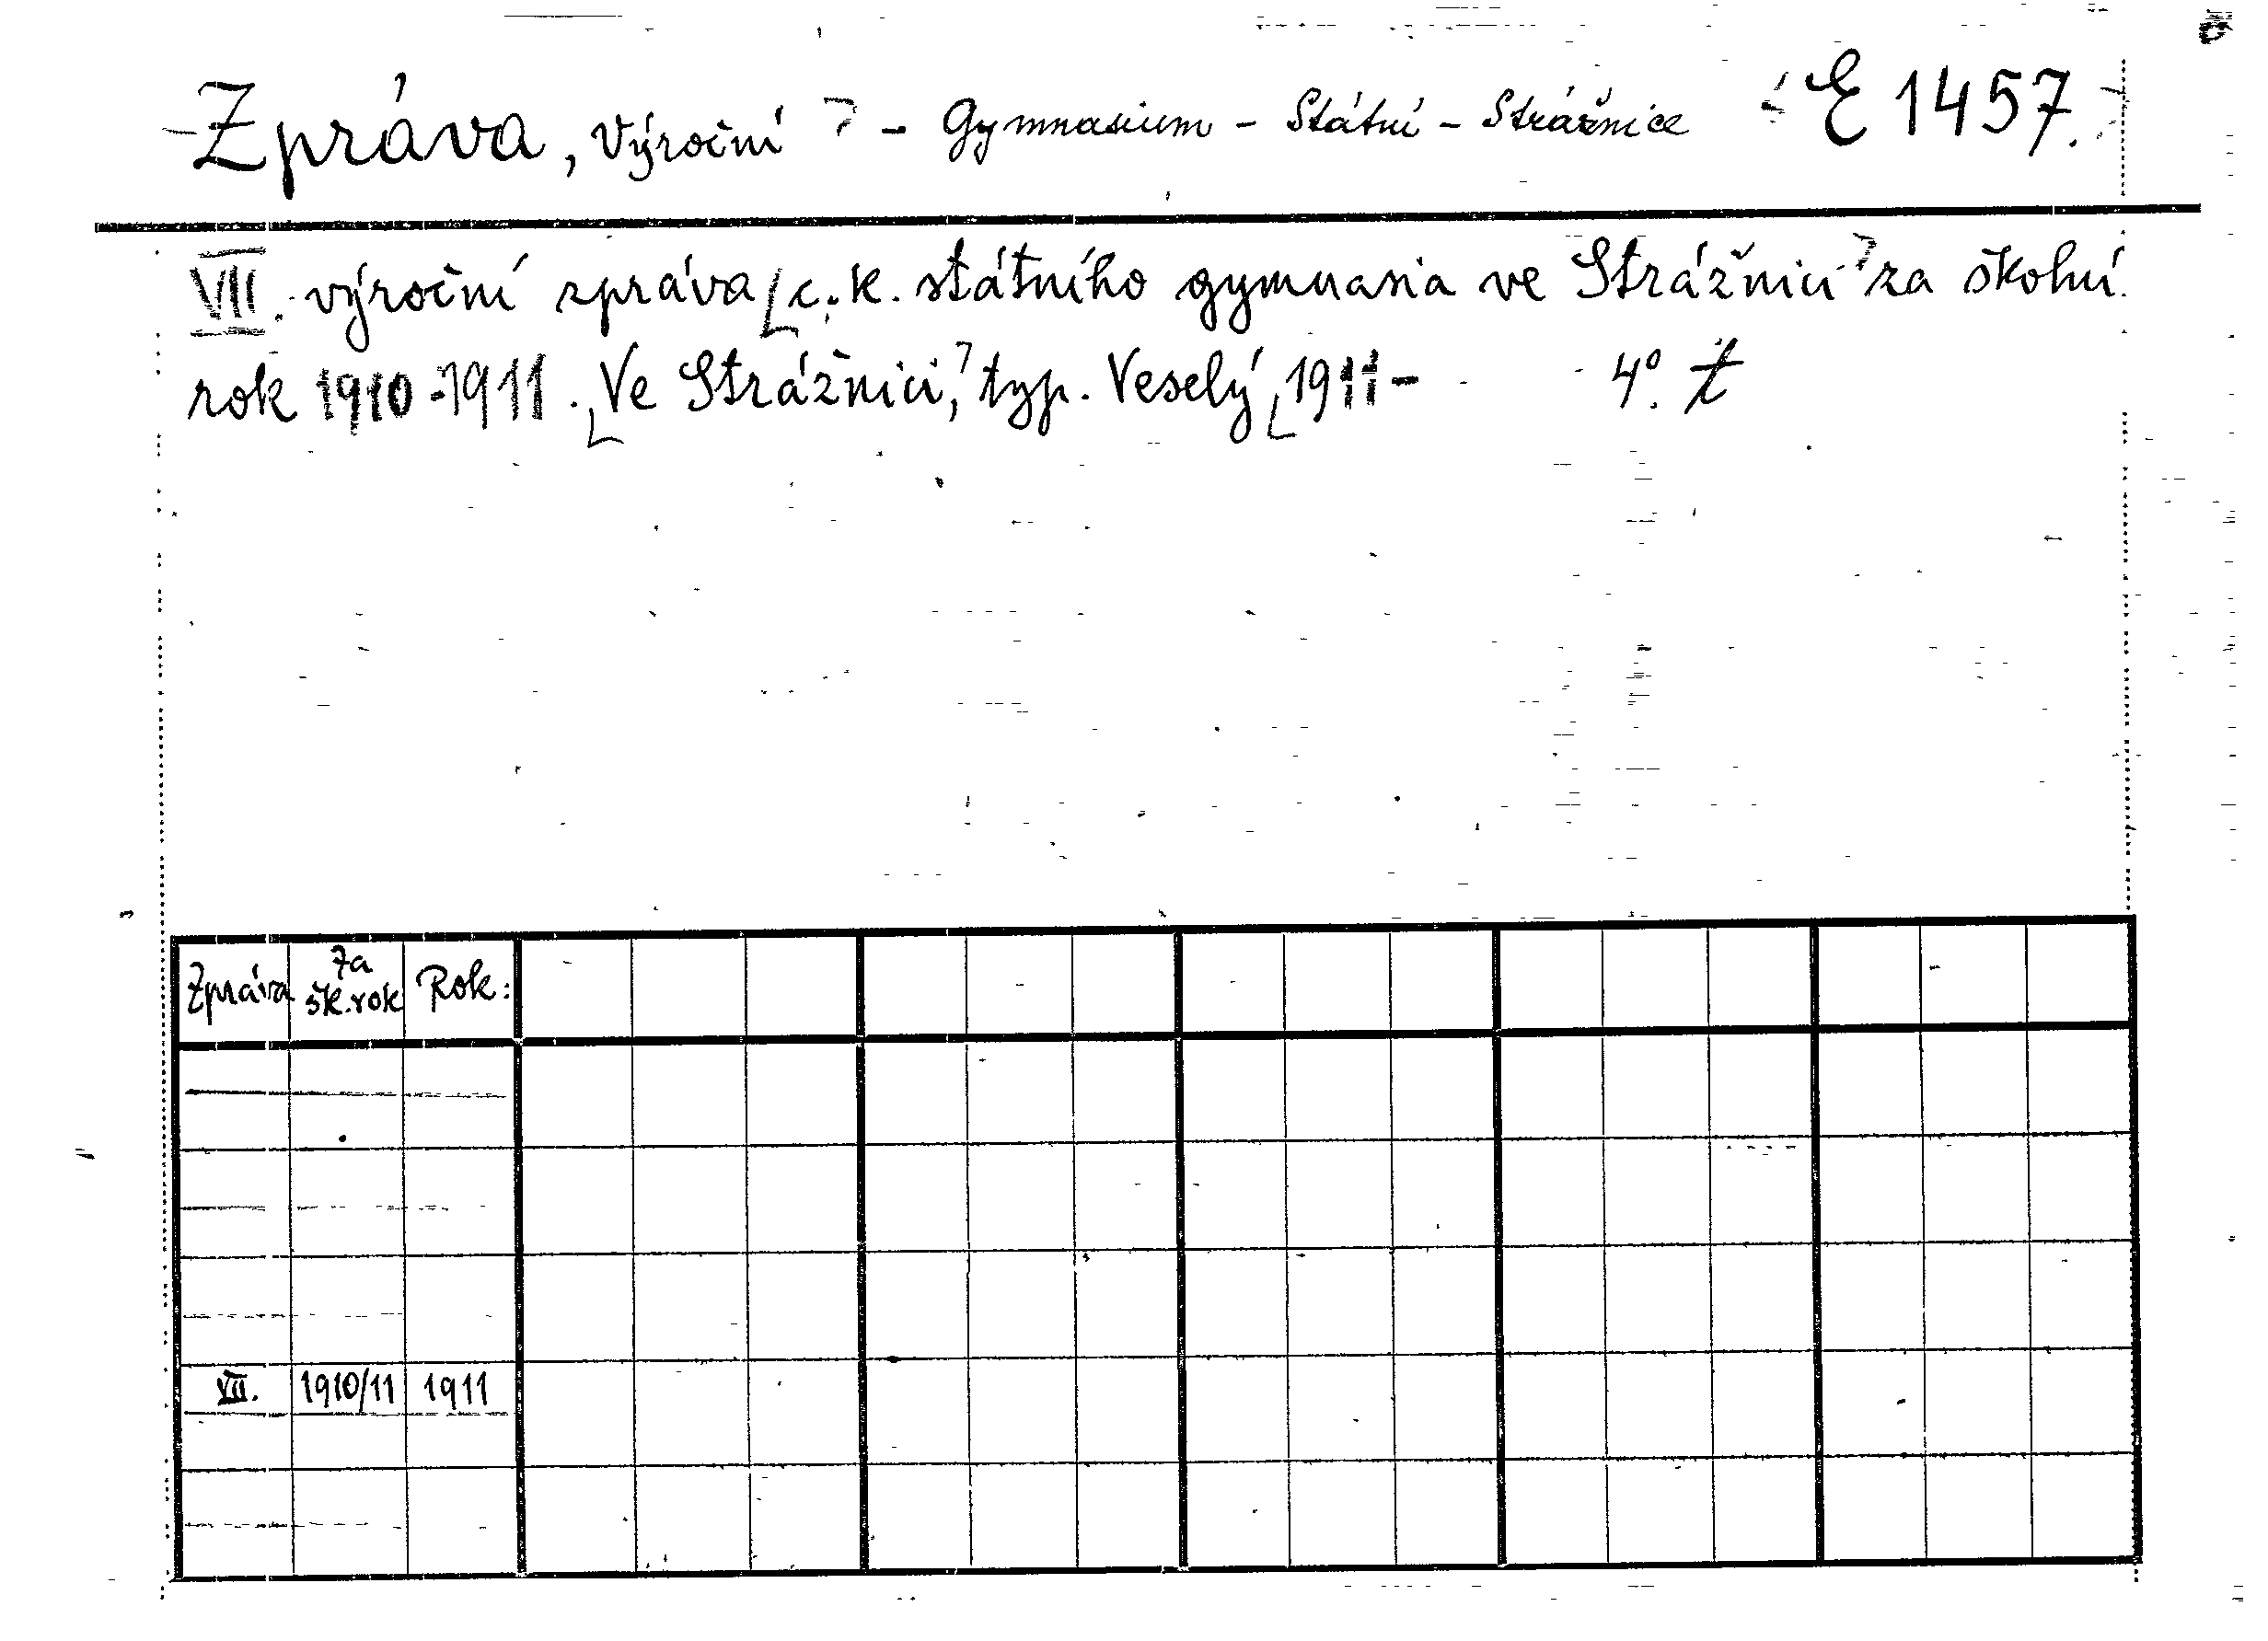 Zpráva, Výroční - Gymnasium - Státní - Strážnice E 1457.
VII. výroční zpráva c. k. státního gymnasia ve Strážnici za školní
rok 1910-1911. Ve Strážnici, typ. Veselý 1911- 4°.
Zpráva Za šk. rok Rok:
VII. 1910/11 1911